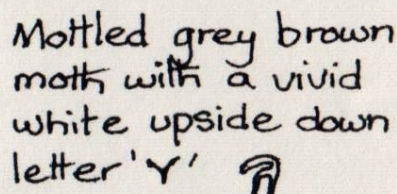 Mottled grey brown
moth with a vivid
white upside down
letter 'Y'